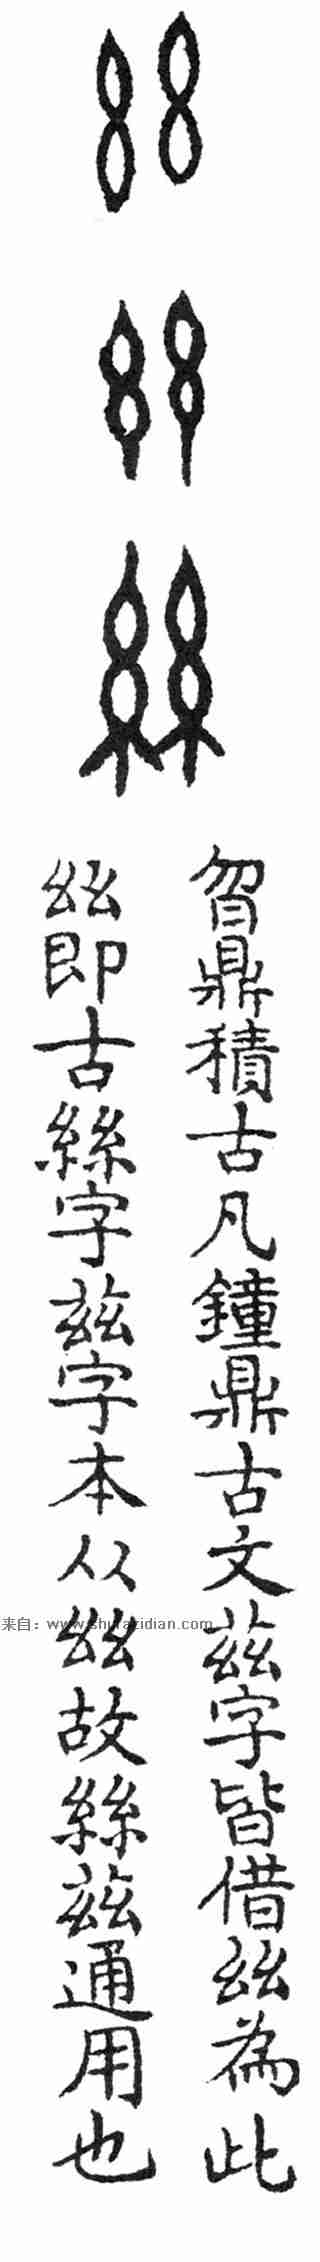 曶鼎積古凡鐘鼎古文茲字皆借𢆶為此
𢆶即古絲字茲字本从𢆶故絲茲通用也
来自：www.shufazidian.com